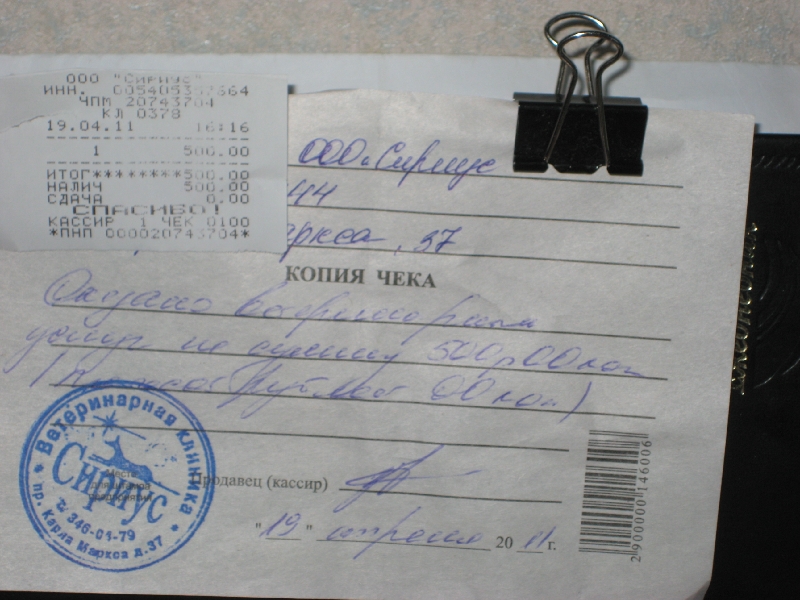 ООО "Сириус"
ИНН.
ЧПМ 20743704
КЛ 0378
19.04.11 16:16
1 500.00
ИТОГ********500.00
НАЛИЧ 500.00
СДАЧА 0.00
СПАСИБО!
КАССИР 1 ЧЕК 0100
*ПНП 000020743704*
ООО "Сириус
44
ркса, 37
КОПИЯ ЧЕКА
Оказано ветеринарных
услуг на сумму 500р 00 коп
(Пятьсот рублей 00 коп)
Продавец (кассир)
"19" апреля 2011 г.
Ветеринарная клиника
Сириус
Место
346-01-79
пр. Карла Маркса д.37
2900000146006